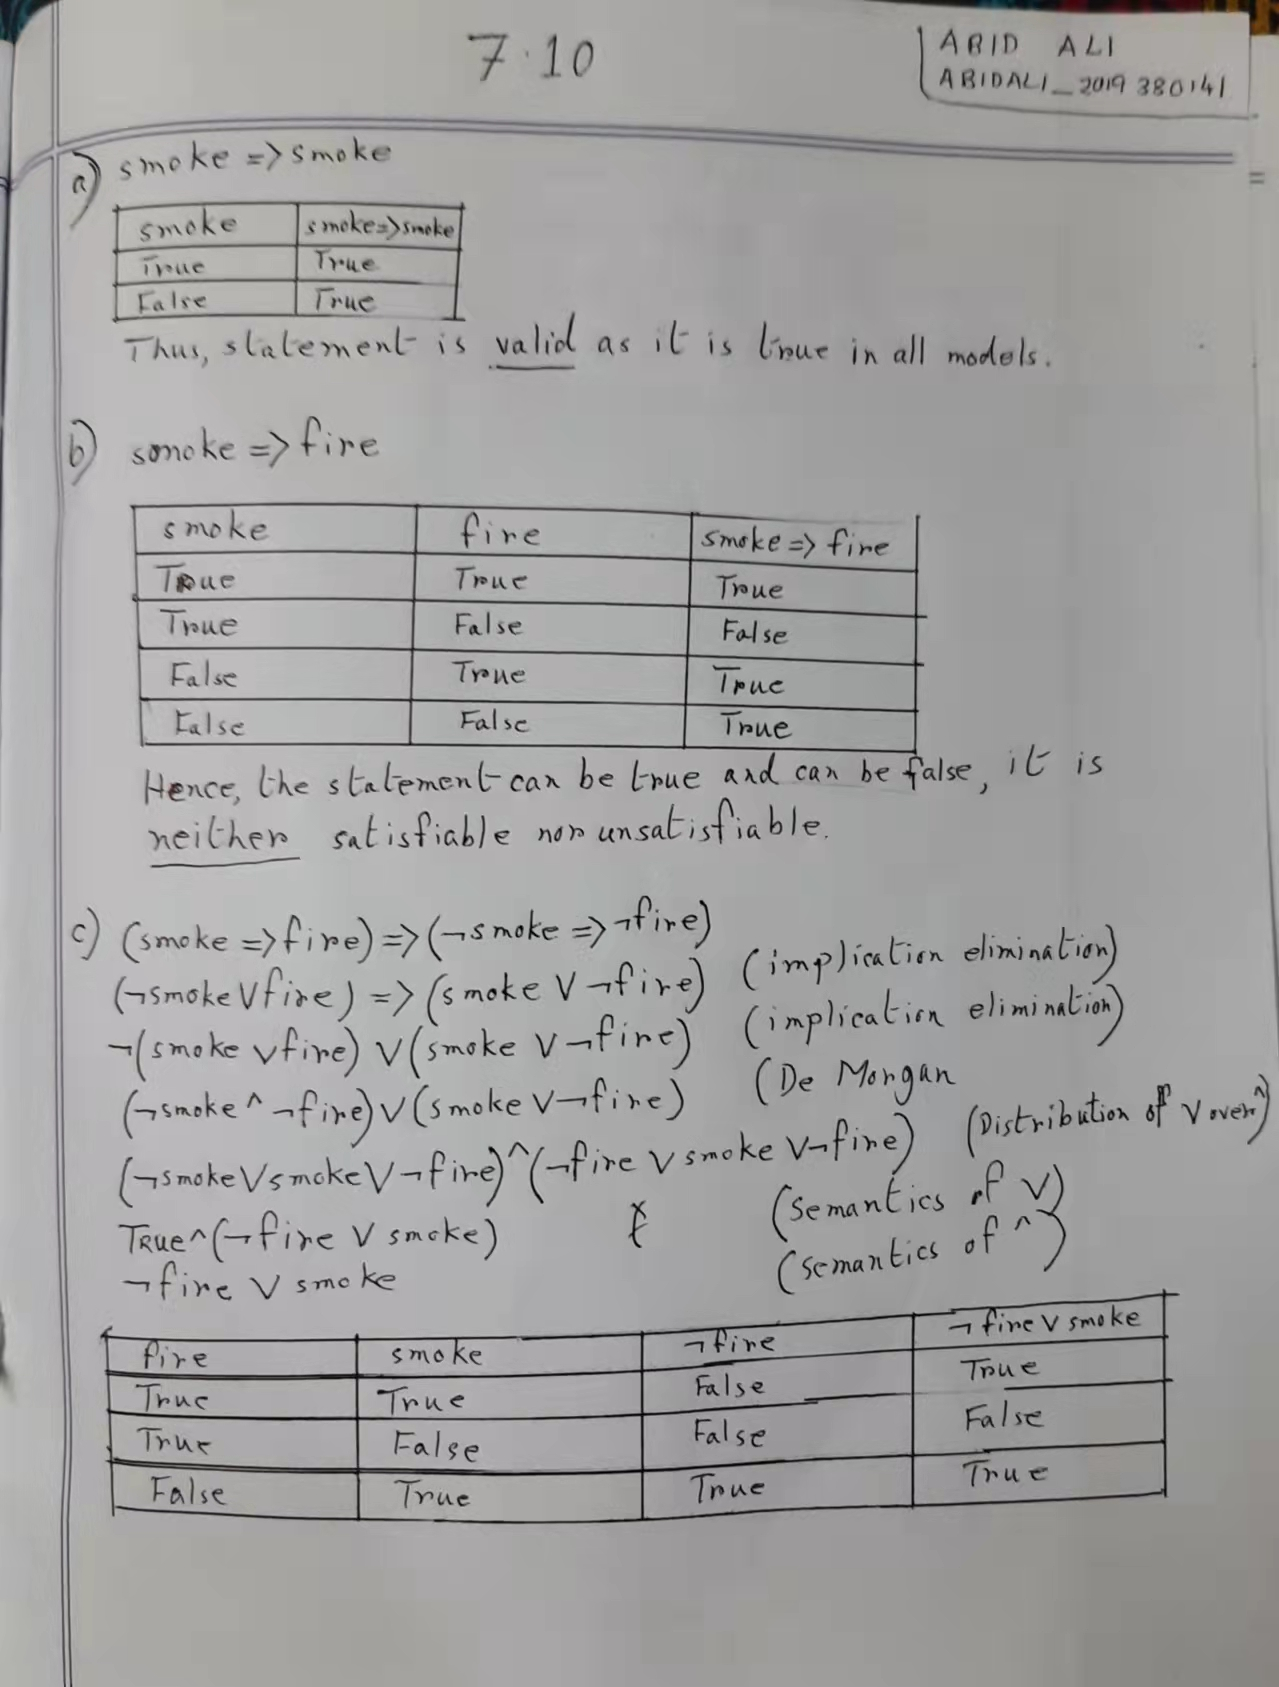 7.10
ARID ALI
ABIDALI_2019380141
a) smoke => smoke
smoke smoke=>smoke
True True
False True
Thus, statement is valid as it is true in all models.
b) smoke => fire
smoke fire smoke => fire
True True True
True False False
False True True
False False True
Hence, the statement can be true and can be false, it is
neither satisfiable nor unsatisfiable.
c) (smoke => fire) => (¬smoke => ¬fire)
(¬smoke V fire) => (smoke V ¬fire) (implication elimination)
¬(smoke V fire) V (smoke V ¬fire) (implication elimination)
(¬smoke ^ ¬fire) V (smoke V ¬fire) (De Morgan
(¬smoke V smoke V ¬fire) ^ (¬fire V smoke V ¬fire) (Distribution of V over ^)
True ^ (¬fire V smoke) (semantics of V)
¬fire V smoke (semantics of ^)
fire smoke ¬fire ¬fire V smoke
True True False True
True False False False
False True True True